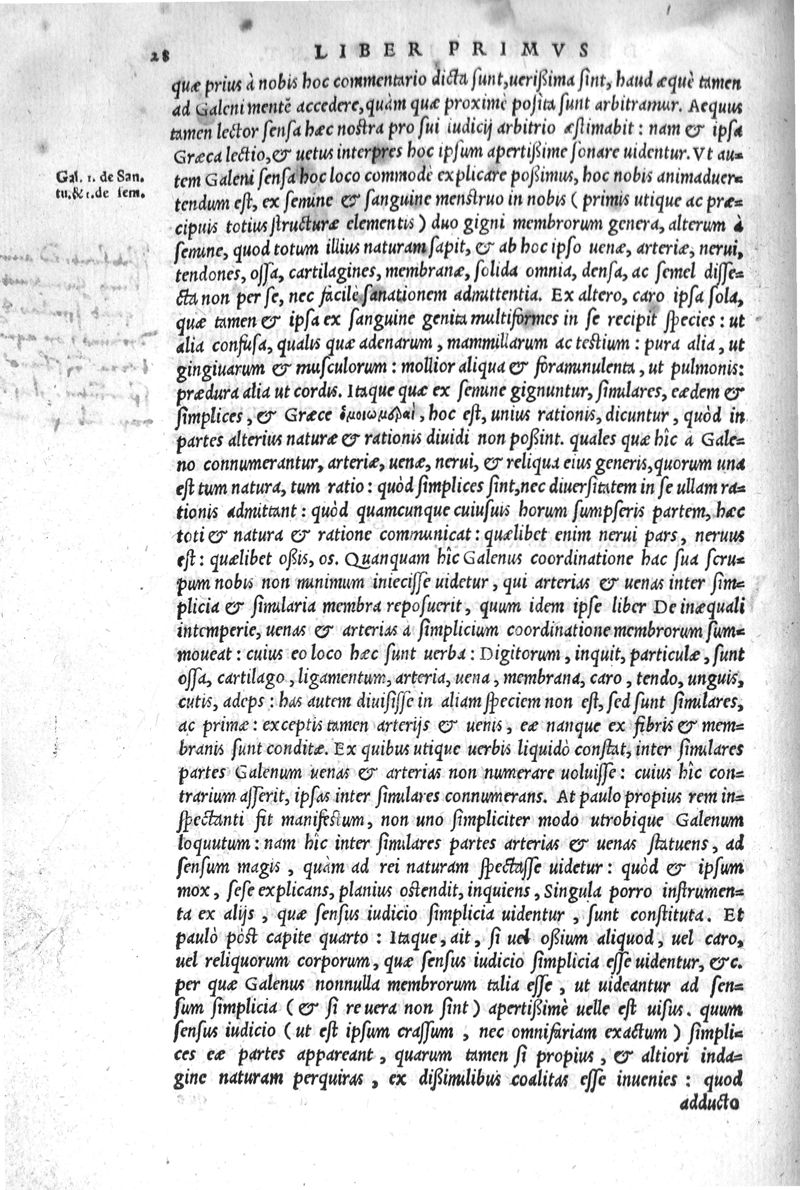 28 LIBER PRIMVS
quæ prius à nobis hoc commentario dicta sunt, uerißima sint, haud æquè tamen
ad Galeni mentẽ accedere, quàm quæ proximè posita sunt arbitramur. Aequus
tamen lector sensa hæc nostra pro sui iudicij arbitrio æstimabit: nam & ipsa
Græca lectio, & uetus interpres hoc ipsum apertißime sonare uidentur. Vt au=
Gal. 1. de San.
tu. & 1. de sem.
tem Galeni sensa hoc loco commodè explicare poßimus, hoc nobis animaduer=
tendum est, ex semine & sanguine menstruo in nobis (primis utique ac præ=
cipuis totius structuræ elementis) duo gigni membrorum genera, alterum à
semine, quod totum illius naturam sapit, & ab hoc ipso uenæ, arteriæ, nerui,
tendones, ossa, cartilagines, membranæ, solida omnia, densa, ac semel disse=
cta non per se, nec facilè sanationem admittentia. Ex altero, caro ipsa sola,
quæ tamen & ipsa ex sanguine genita multiformes in se recipit species: ut
alia confusa, qualis quæ adenarum, mammillarum ac testium: pura alia, ut
gingiuarum & musculorum: mollior aliqua & foraminulenta, ut pulmonis:
prædura alia ut cordis. Itaque quæ ex semine gignuntur, simulares, eædem &
simplices, & Græce ὁμοιωμεραὶ, hoc est, unius rationis, dicuntur, quòd in
partes alterius naturæ & rationis diuidi non poßint. quales quæ hîc à Gale=
no connumerantur, arteriæ, uenæ, nerui, & reliqua eius generis, quorum una
est tum natura, tum ratio: quòd simplices sint, nec diuersitatem in se ullam ra=
tionis admittant: quòd quamcunque cuiusuis horum sumpseris partem, hæc
toti & natura & ratione communicat: quælibet enim nerui pars, neruus
est: quælibet oßis, os. Quanquam hîc Galenus coordinatione hac sua scru=
pum nobis non minimum iniecisse uidetur, qui arterias & uenas inter sim=
plicia & simularia membra reposuerit, quum idem ipse liber De inæquali
intemperie, uenas & arterias à simplicium coordinatione membrorum sum=
moueat: cuius eo loco hæc sunt uerba: Digitorum, inquit, particulæ, sunt
ossa, cartilago, ligamentum, arteria, uena, membrana, caro, tendo, unguis,
cutis, adeps: has autem diuisisse in aliam speciem non est, sed sunt simulares,
ac primæ: exceptis tamen arterijs & uenis, eæ nanque ex fibris & mem=
branis sunt conditæ. Ex quibus utique uerbis liquidò constat, inter simulares
partes Galenum uenas & arterias non numerare uoluisse: cuius hîc con=
trarium asserit, ipsas inter simulares connumerans. At paulo propius rem in=
spectanti fit manifestum, non uno simpliciter modo utrobique Galenum
loquutum: nam hîc inter simulares partes arterias & uenas statuens, ad
sensum magis, quàm ad rei naturam spectasse uidetur: quòd & ipsum
mox, sese explicans, planius ostendit, inquiens, Singula porro instrumen=
ta ex alijs, quæ sensus iudicio simplicia uidentur, sunt constituta. Et
paulò pòst capite quarto: Itaque, ait, si uel oßium aliquod, uel caro,
uel reliquorum corporum, quæ sensus iudicio simplicia esse uidentur, &c.
per quæ Galenus nonnulla membrorum talia esse, ut uideantur ad sen=
sum simplicia (& si re uera non sint) apertißimè uelle est uisus. quum
sensus iudicio (ut est ipsum crassum, nec omnifariam exactum) simpli=
ces eæ partes appareant, quarum tamen si propius, & altiori inda=
gine naturam perquiras, ex dißimilibus coalitas esse inuenies: quod
adducto